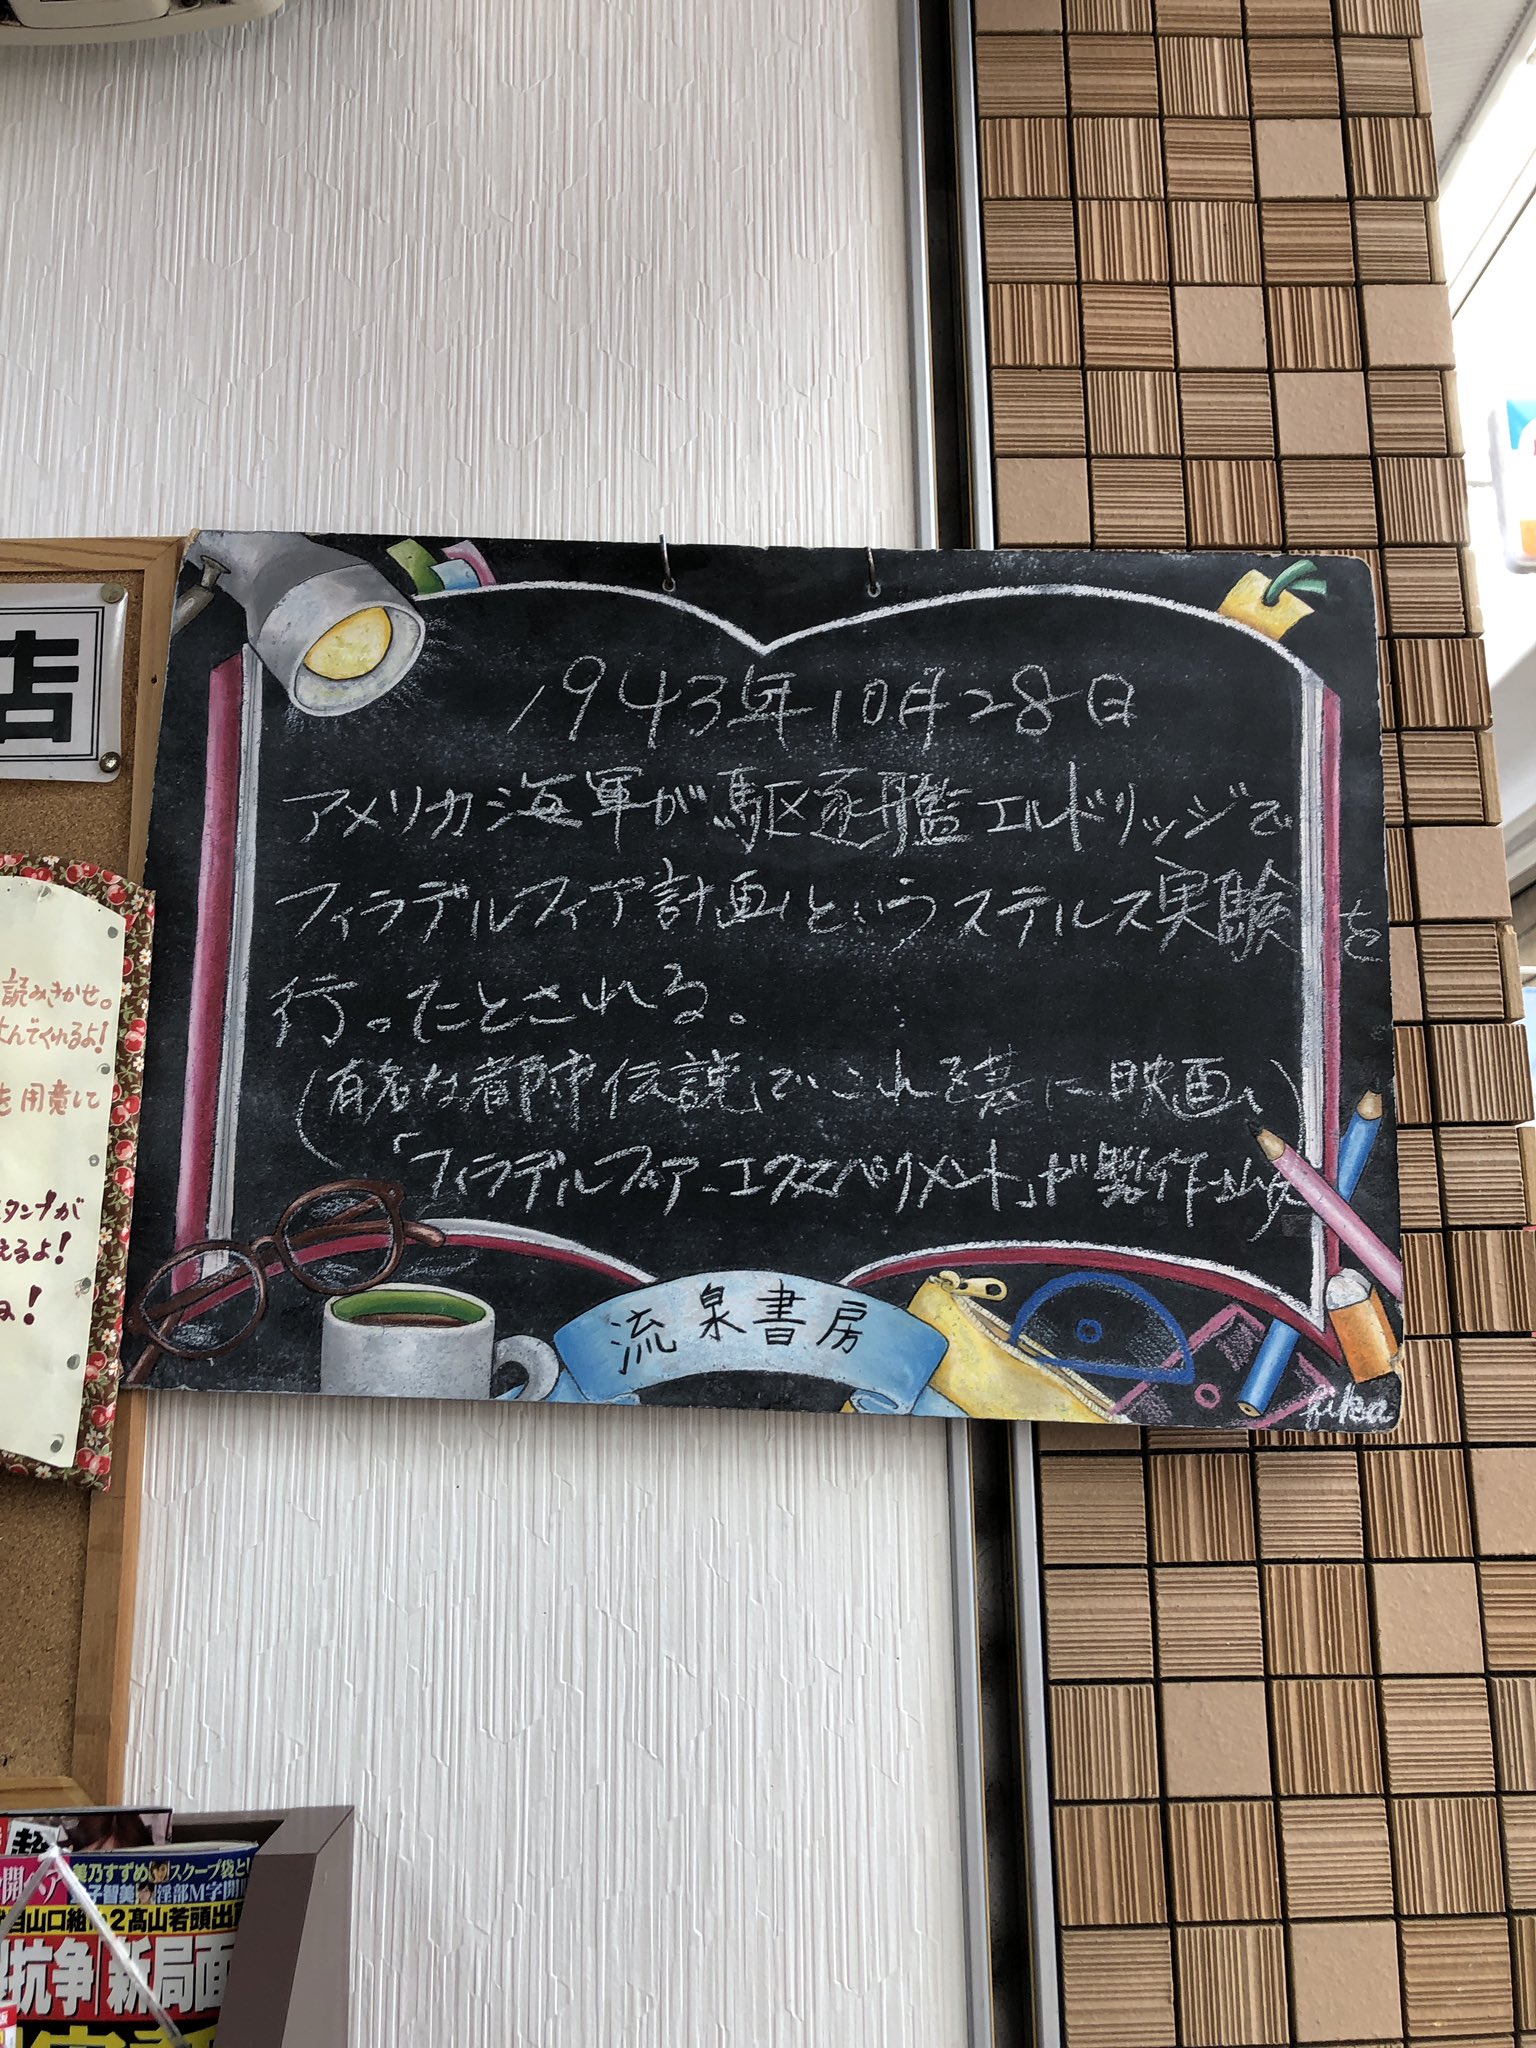 店
読みきかせ。
よんでくれるよ!
を用意して
スタンプが
えるよ!
ね!
1943年10月28日
アメリカ海軍が駆逐艦エルドリッジで
フィラデルフィア計画というステルス実験を
行ったとされる。
(有名な都市伝説でこれを基に映画
「フィラデルフィア・エクスペリメント」が製作
流泉書房
fika
美乃すずめ スクープ袋と
開 子智美 淫部M字開
山口組No2髙山若頭出
抗争 新局面